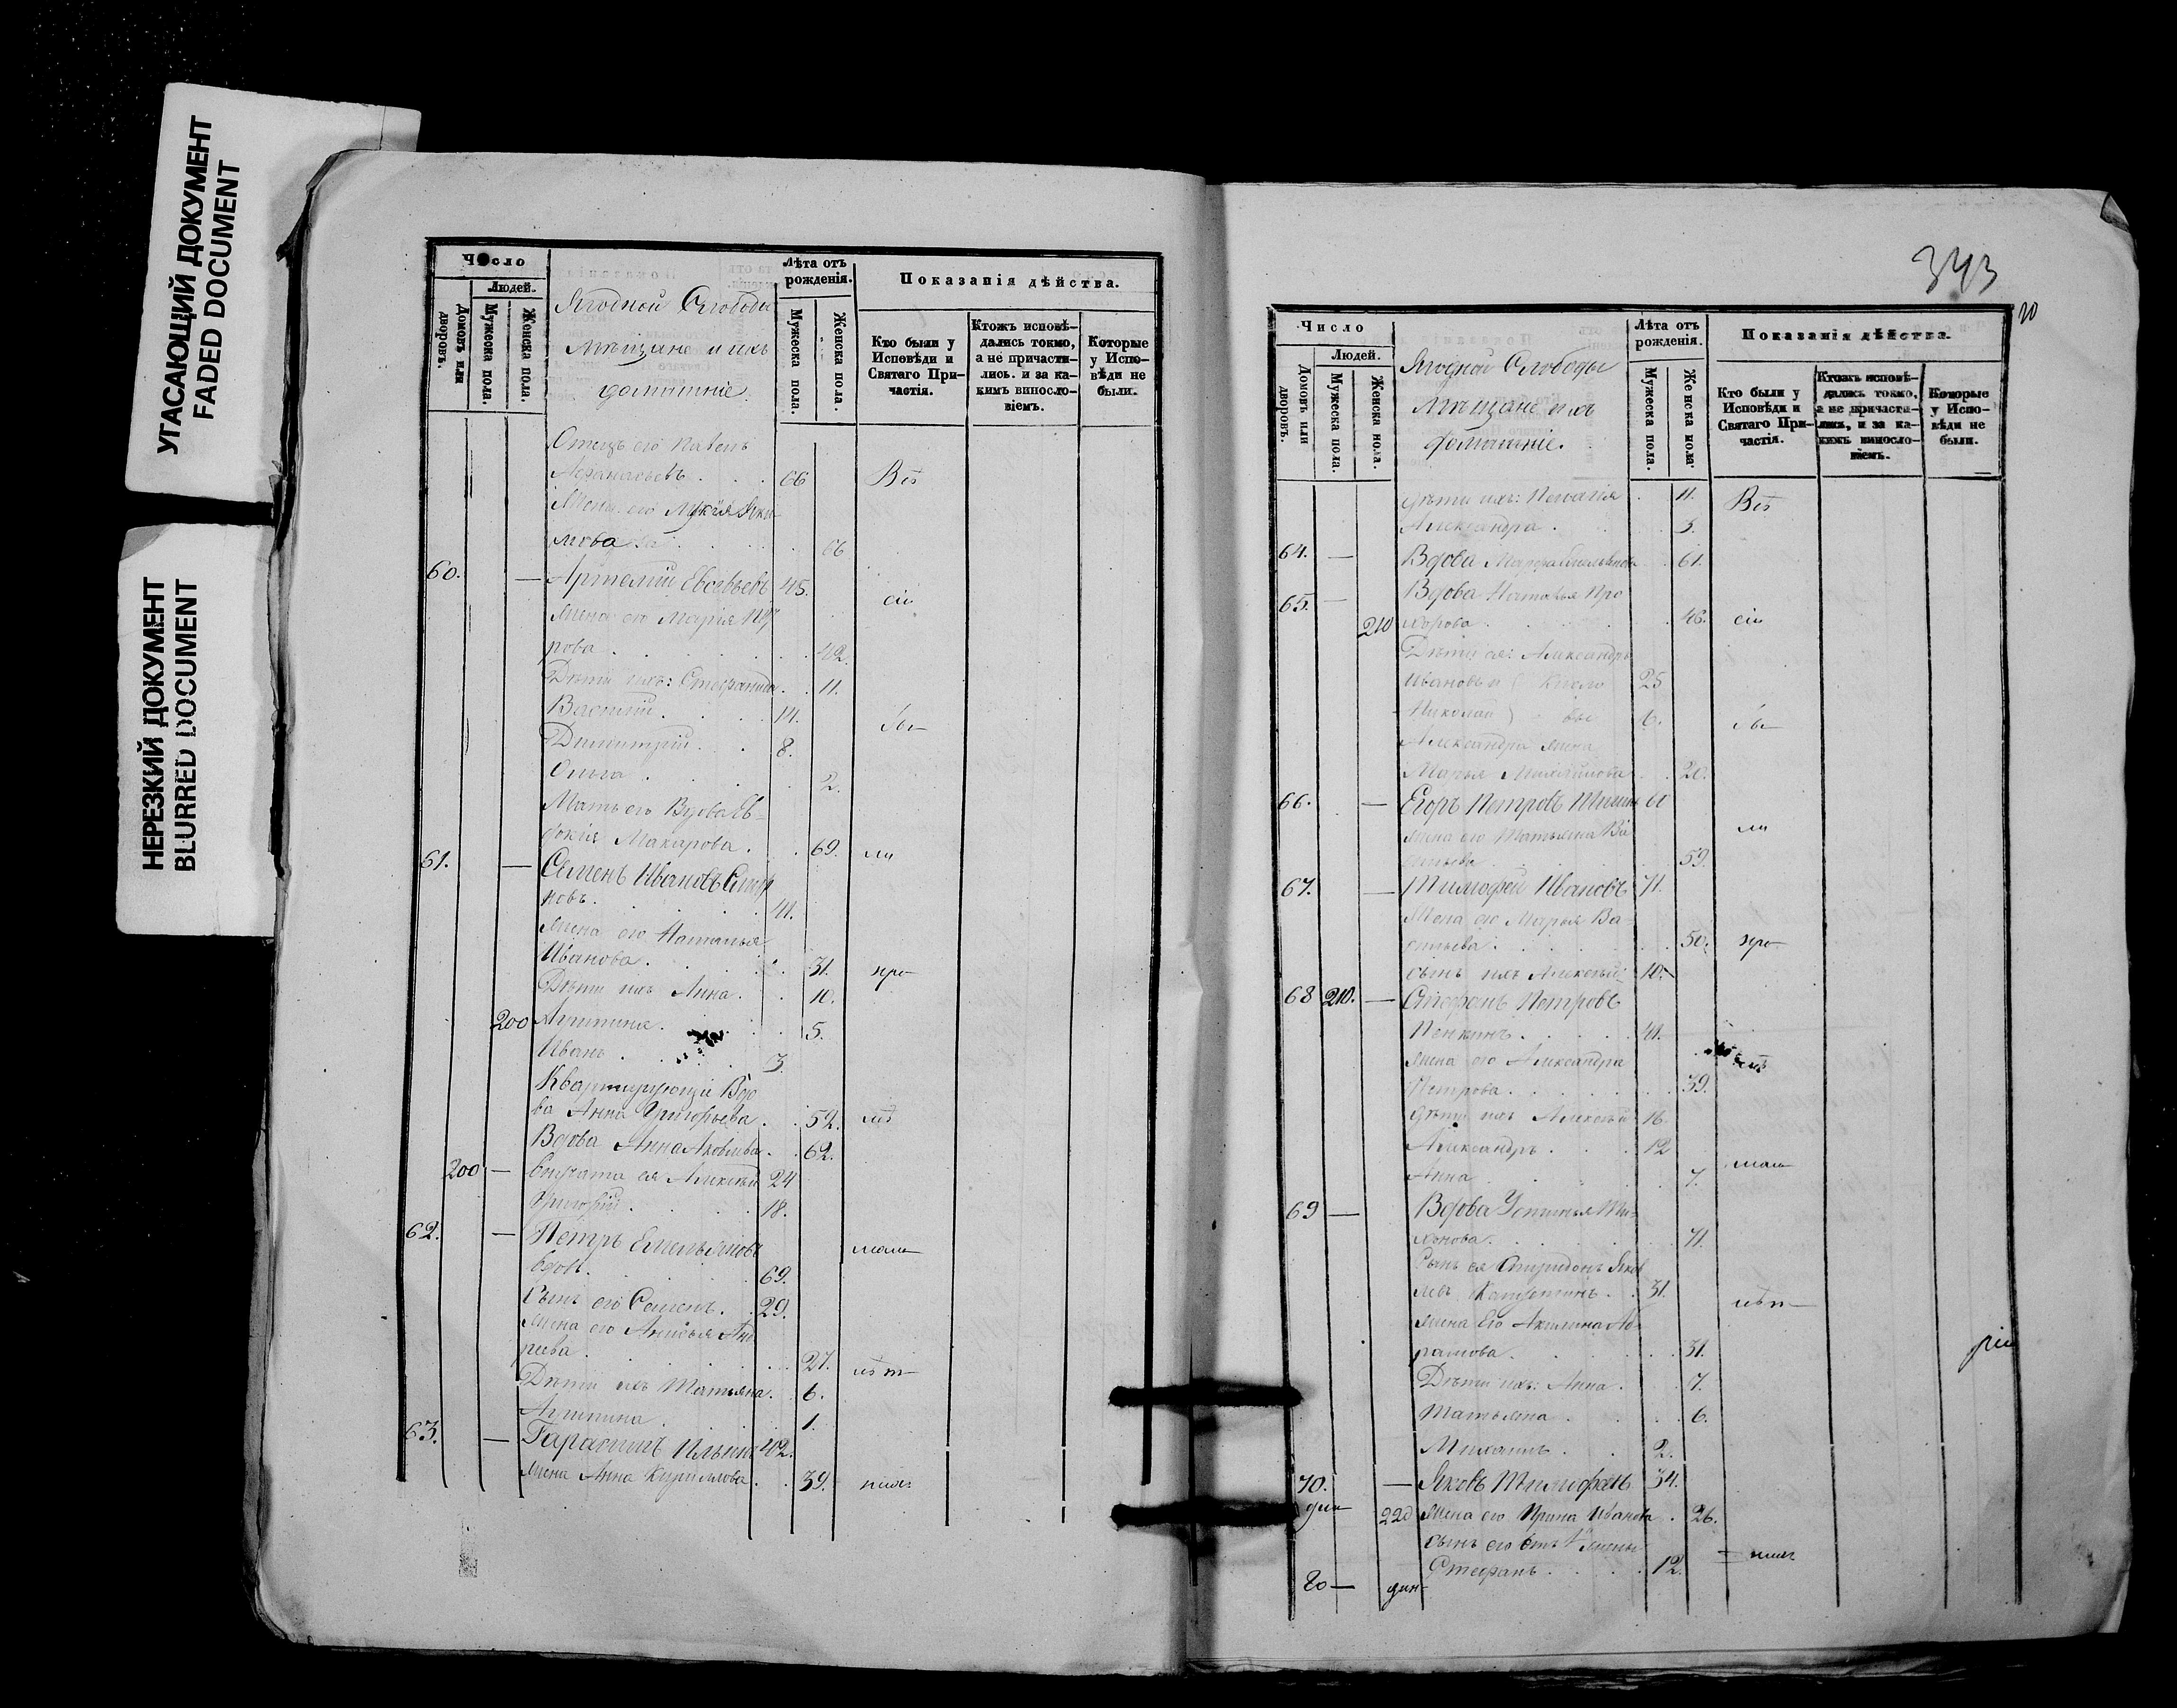 УГАСАЮЩИЙ ДОКУМЕНТ
FADED DOCUMENT
НЕРЕЗКИЙ ДОКУМЕНТ
BLURRED DOCUMENT
Число
Людей.
Домовъ или дворовъ.
Мужеска пола.
Женска пола.
Ягодной Слободы
Мѣщане и ихъ
домашніе.
Лѣта отъ рожденія.
Мужеска пола.
Женска пола.
Показанія дѣйства.
Кто были у Исповѣди и Святаго Причастія.
Ктожъ исповѣдались токмо, а не причастились. и за какимъ винословіемъ.
Которые у Исповѣди не были.
Отецъ его Павелъ
Афанасьевъ . . . 66 Всѣ
Жена его
66
60. — Артемій Евсевьевъ 45.
сіи
жена его Марія
рова . . . 42.
Дѣти ихъ: Стефанида . . 11.
Василій . . . 14.
Димитрій . . 8.
Ольга . . . 2.
Мать его Вдова Ев-
докія Макарова . . 69.
61. — Семенъ Ивановъ
новъ . . . 41.
жена его Наталья
Иванова . . . 31.
Дѣти ихъ Анна . . 10.
200 Агрипина . . . 5.
Иванъ . . . 3.
Квартирующіе Вдо
ва Анна Григорьева . . 52.
Вдова Анна Яковлева . . 62.
200 — ея Алексѣй 24
Григорій . . . 18.
62. — Петръ Емельяновъ
вдовъ . . . 69.
Сынъ его Семенъ . . 29.
жена его Анисья Анд
реева . . . 27.
Дѣти ихъ Татьяна . . 6.
Агрипина . . . 1.
63. — Гарасимъ Ильинъ 42.
жена Анна Кирилова . . 39.
343
Число
Людей.
Домовъ или дворовъ.
Мужеска пола.
Женска пола.
Ягодной Слободы
Мѣщане и ихъ
домашніе.
Лѣта отъ рожденія.
Мужеска пола.
Женска пола.
Показанія дѣйства.
Кто были у Исповѣди и Святаго Причастія.
Ктожъ исповѣдались токмо, а не причастились, и за какимъ винословіемъ.
Которые у Исповѣди не были.
дѣти ихъ: Пелагія . 11. Всѣ
Александра . . . 5.
64. — Вдова Марфа . 61.
65. — Вдова Наталья Про
210 хорова . . . 46. сіи
Дѣти ея: Александръ
Ивановъ 25
Николай
Александра жена
Марья Михайлова . . 20.
66. — Егоръ Петровъ 60
жена его Татьяна Ва
сильева . . . 59.
67. — Тимофей Ивановъ 71.
Жена его Марья Ва-
сильева . . . 50.
сынъ ихъ Алексѣй 10.
68 210. — Стефанъ Петровъ
Пенкинъ . . . 41.
жена его Александра
Петрова . . . 39.
дѣти ихъ Алексѣй 16
Александръ . . . 12
Анна . . . 7.
69 — Вдова Устинья Ти-
хонова . . . 71.
Сынъ ея Спиридонъ Яков
левъ . . 31.
жена Его Акилина Аб-
рамова . . . 31.
Дѣти ихъ: Анна . . 7.
Татьяна . . . 6.
Михаилъ . . . 2.
70. — Яковъ Тимофѣевъ 34.
220 жена его Ирина Иванова . 26.
сынъ его отъ 1й жены
Стефанъ . . . 12.